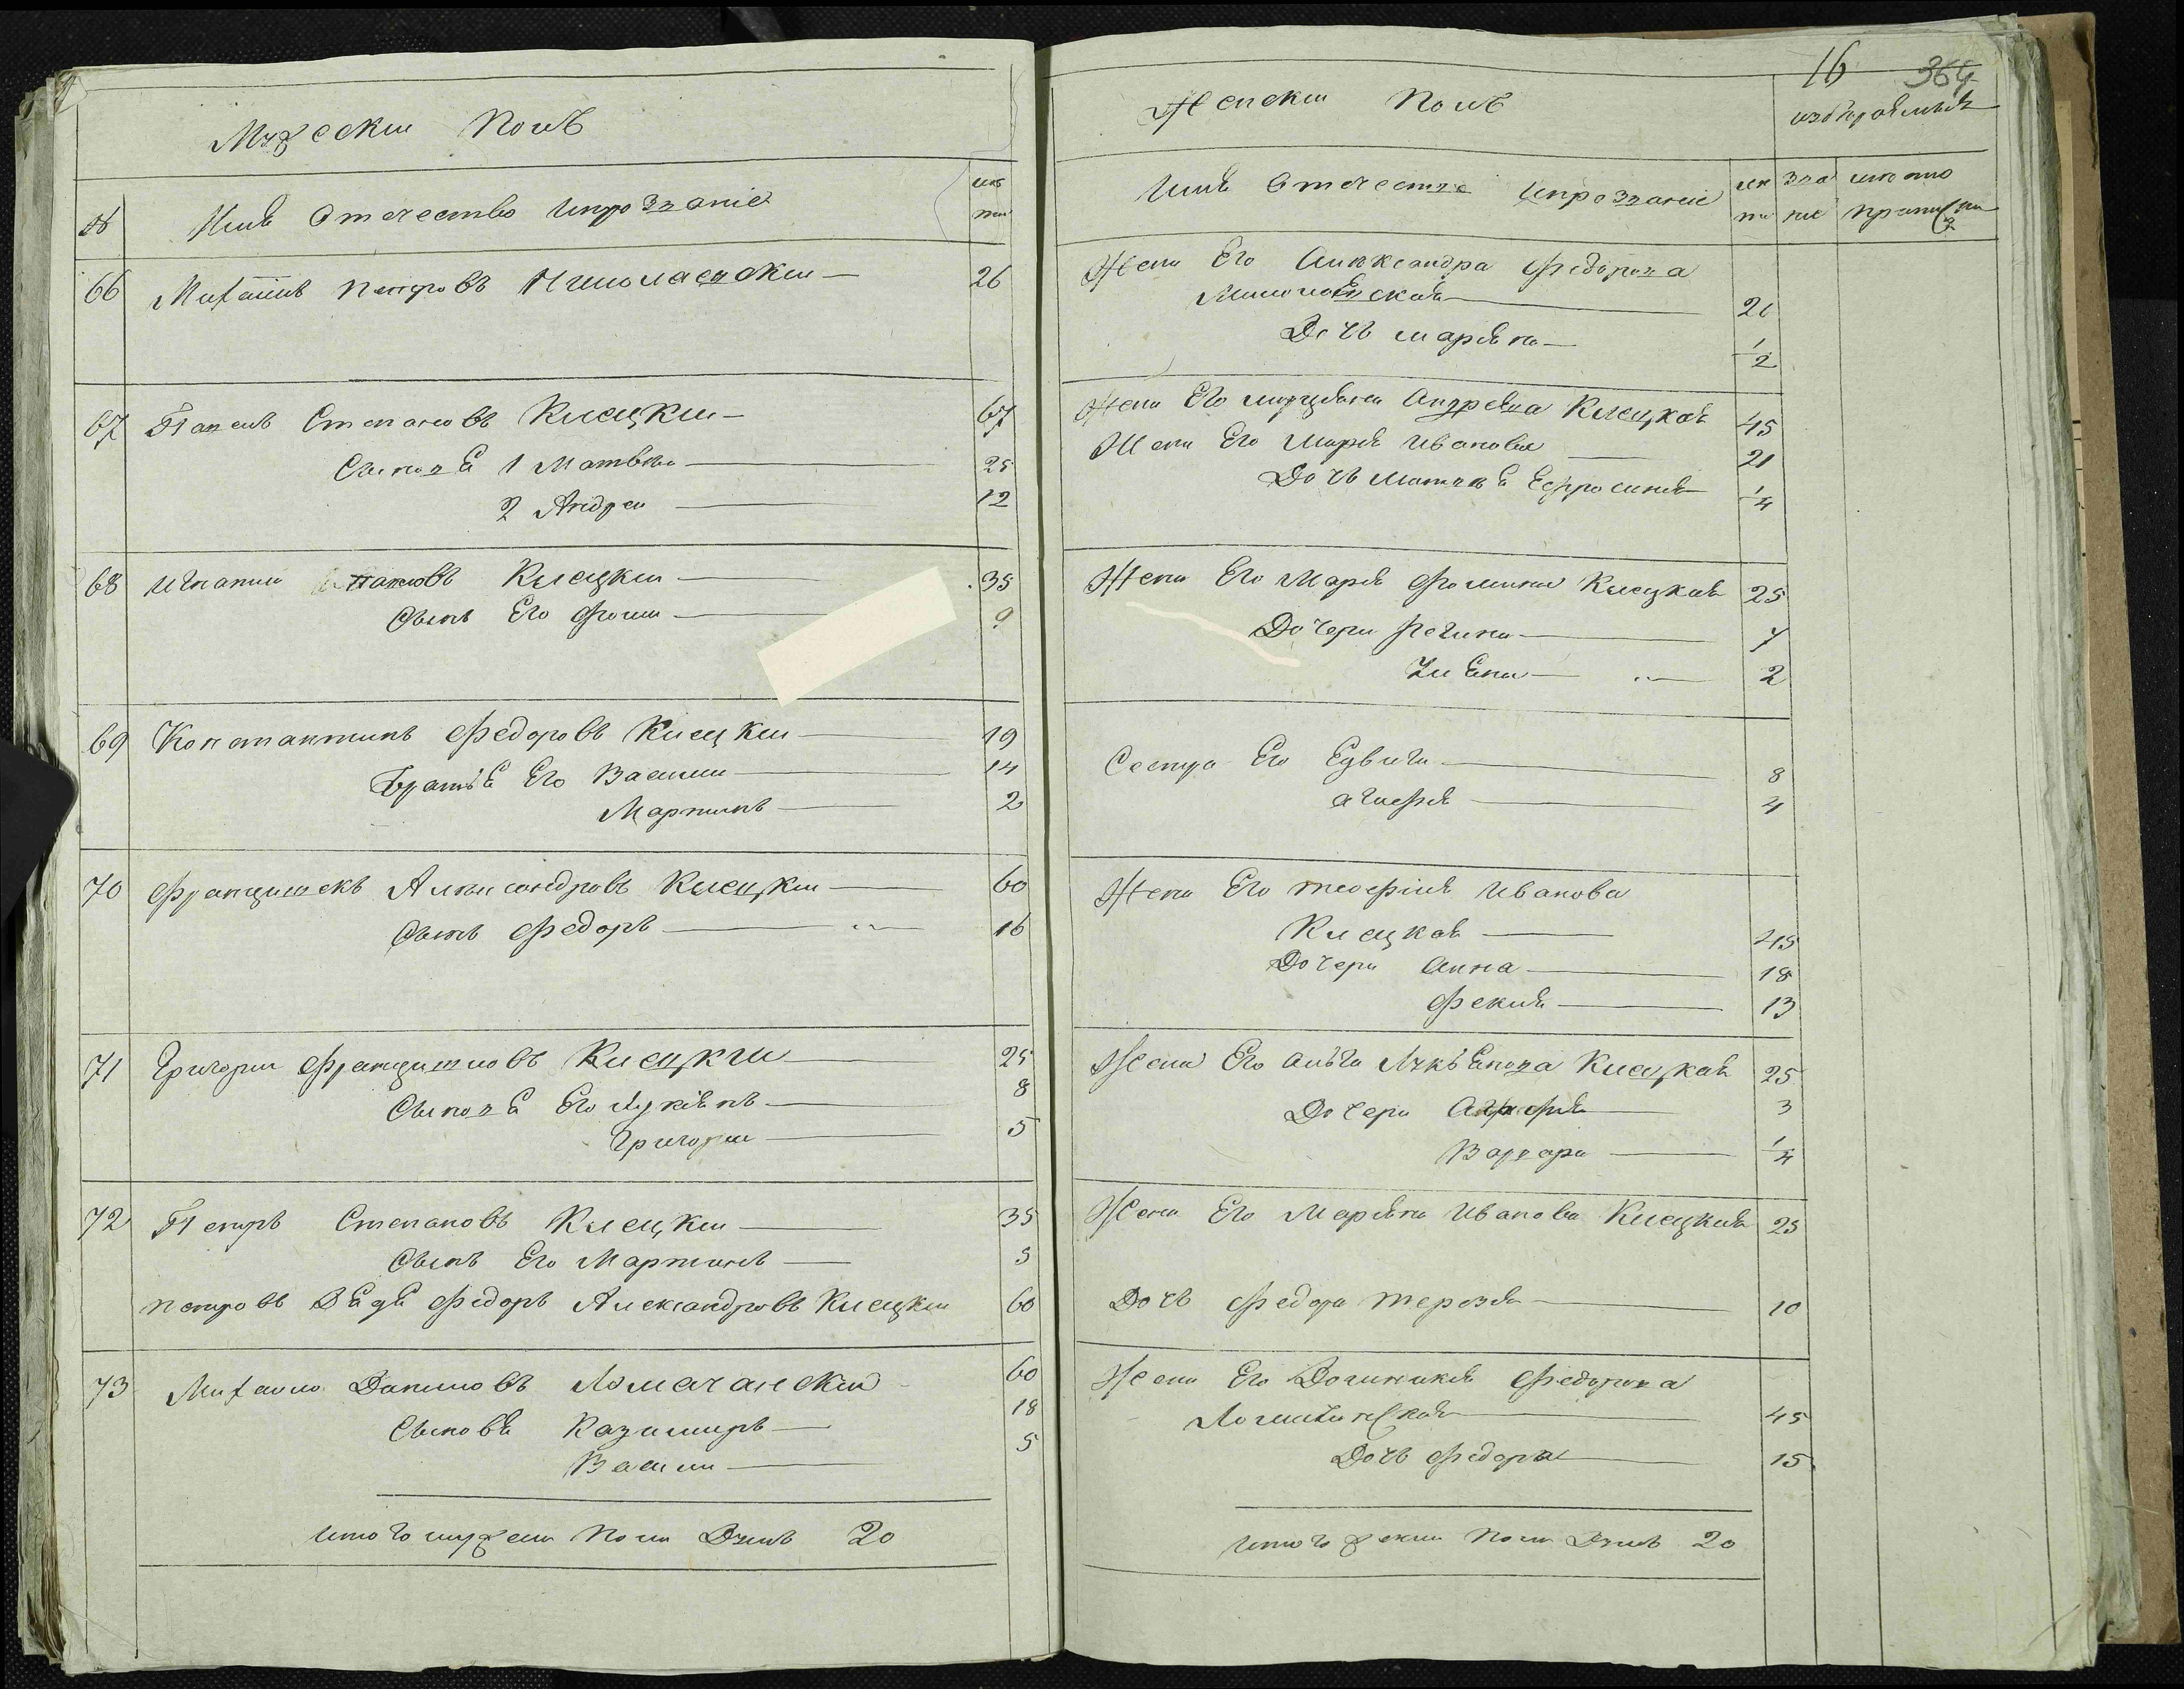 Мужески Полъ
№ Имя Отечество Ипрозваніе лѣты
66 Михаилъ Петровъ 26
67 Павелъ Степановъ Клецки 67
Сыновя 1 Матвѣи 25
2 Андреи 12
68 Игнатии Клецки 35
Сынъ Его Фома 9
69 Константинъ Федоровъ Клецки 19
Братья Его Васили 14
Мартинъ 2
70 Францишекъ Александровъ Клецки 60
Сынъ Федоръ 16
71 Григори Францишковъ Клецки 25
Сыновя Его Лукянъ 8
Григори 5
72 Петръ Степановъ Клецки 35
Сынъ Его Мартинъ 5
Петровъ Дядя Федоръ Александровъ Клецки 60
73 Михаило Даниловъ Ломачански 60
Сыновя Казимиръ 18
Васили 5
Итого мужеска Пола Душъ 20
16 364
Женски Полъ
Имя Отечество Ипрозваніе
Жена Его Александра Федорова
20
Дочь Маряна 1/2
Жена Его Андреева Клецкая 45
Жена Его Маря Иванова 21
Дочь Матвея Ефросиня 1/4
Жена Его Маря Фомина Клецкая 25
Дочери Регина 7
2
Сестра Его Едвига 8
Агафя 4
Жена Его Теофіля Иванова
Клецкая 45
Дочери Анна 18
Фекля 13
Жена Его Лукьянова Клецкая 25
Дочери Агафя 3
Варвара 1/4
Жена Его Маряна Иванова Клецкая 25
Дочь Федора Терезя 10
Жена Его Доминикя Федорова
Ломачанская 45
Дочь Федора 15
Итого женска Пола Душъ 20